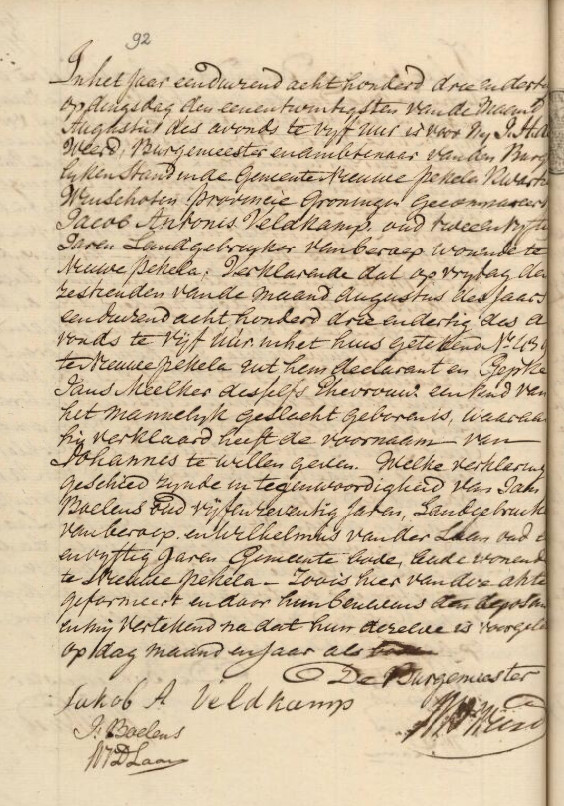 92
In het Jaar eenduizend acht honderd drie en dertig
op dingsdag den eenentwintigsten van de Maand
Augustus des avonds te vyf uur is voor My J. H. de
Weerd, Burgemeester en ambtenaar van den Burger
lyken Stand in de Gemeente Nieuwe Pekela Kwartier
Winschoten Provincie Groningen Gecompareerd
Jacob Antonis Veldkamp, oud twee en vyftig
Jaren Landgebruyker van beroep wonende te
Nieuwe Pekela; Verklarende dat op vrydag den
zestienden van de maand Augustus des Jaars
eenduizend acht honderd drie en dertig des a
vonds te vyf uur in het huis getekend No. 43
te Nieuwe Pekela uit hem declarant en
Jans Meelker desselfs Ehevrouw een kind van
het mannelyk geslacht geboren is, waaraan
hy verklaard heeft de voornaam van
Johannes te willen geven. Welke verklaring
geschied zynde in tegenwoordigheid van Jan
Boelens oud vyf en zeventig Jaren, Landgebruik
van beroep en Wilhelmus van der Laan oud
en vyftig Jaren Gemeente bode, beide wonende
te Nieuwe Pekela – Zoo is hier van deze akte
geformeert en door hun benevens den
en my vertekend na dat hun dezelve is voorgele
op dag maand en jaar als
De Burgemeester
Jakob A Veldkamp
J: Boelens
W V D Laan